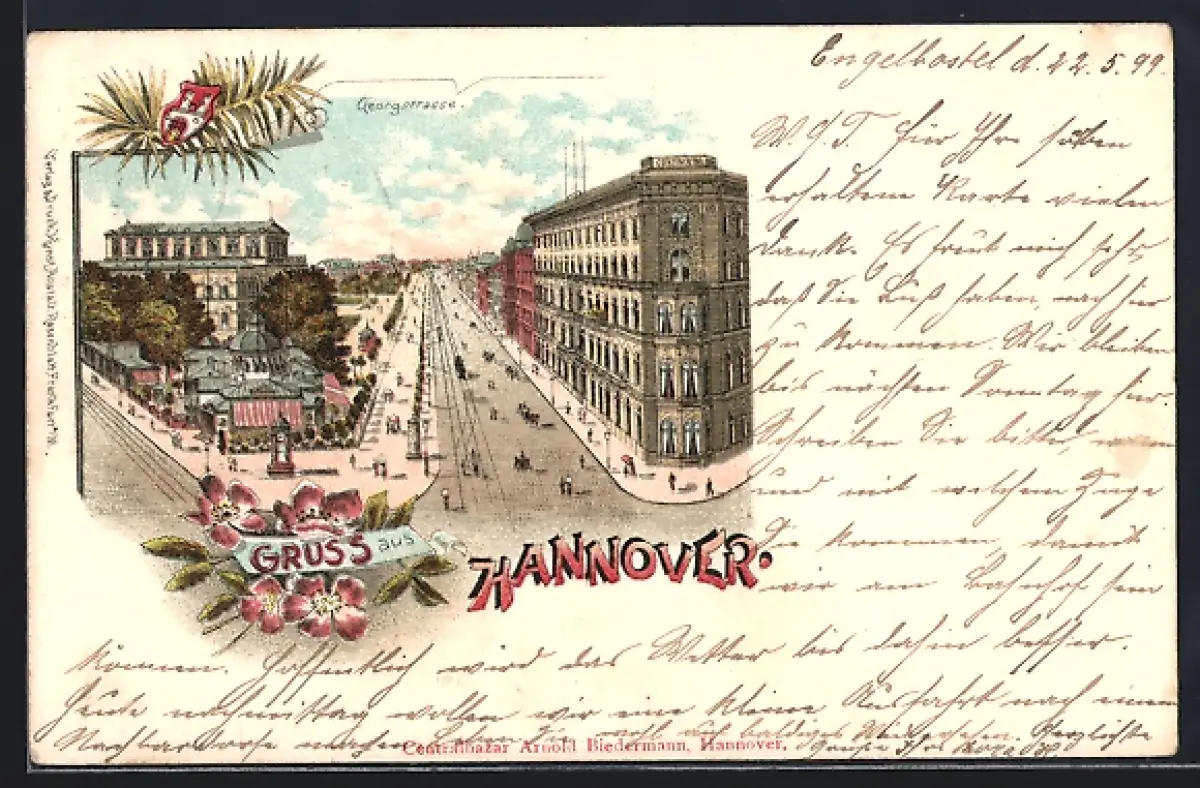 Engelbostel d. 22.5.99.
W. g. T. für Ihre soeben
erhaltene Karte vielen
Dank. Es freut mich sehr,
daß Sie Lust haben, nach hier
zu kommen. Wir bleiben
bis nächsten Sonntag hier
Schreiben Sie bitte, wann
und mit welchem Zuge
Sie kommen, damit
wir am Bahnhof sein
können. Hoffentlich wird das Wetter bis dahin besser.
Heute nachmittag wollen wir eine kleine Ausfahrt nach einem
Nachbardorfe machen. Leben Sie wohl auf baldiges Wiedersehen. Herzlichste
Grüsse Ihre
Georgstrasse.
GRUSS aus
HANNOVER.
Centralbazar Arnold Biedermann, Hannover.